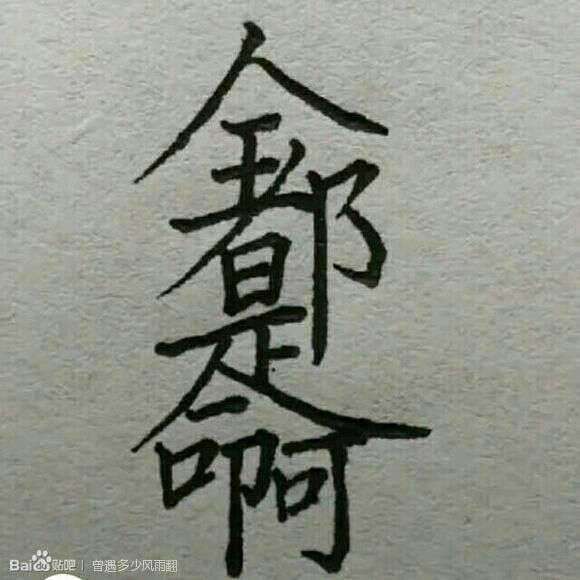 全都是命啊
Bai贴吧 | 曾遇多少风雨翻